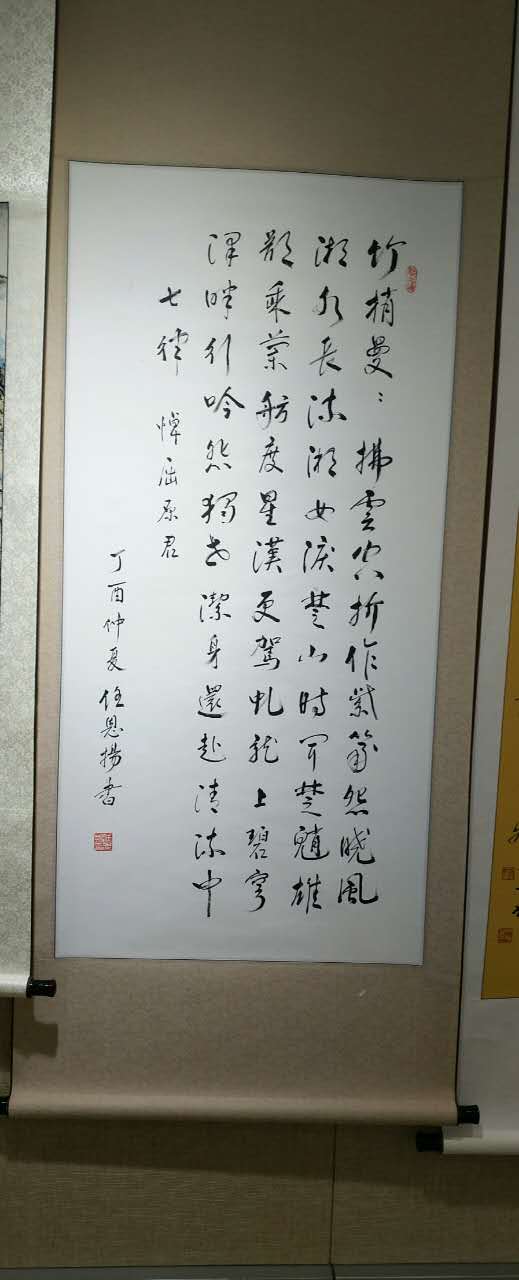 竹梢曼〻拂雲空折作紫篴怨晓風
湘水長流湘女淚楚山時楚雄
乘蘭舫度星漢更駕虬龍上碧穹
澤畔行吟獨潔身還赴清流中
七律 悼屈原君
丁酉仲夏任恩揚書